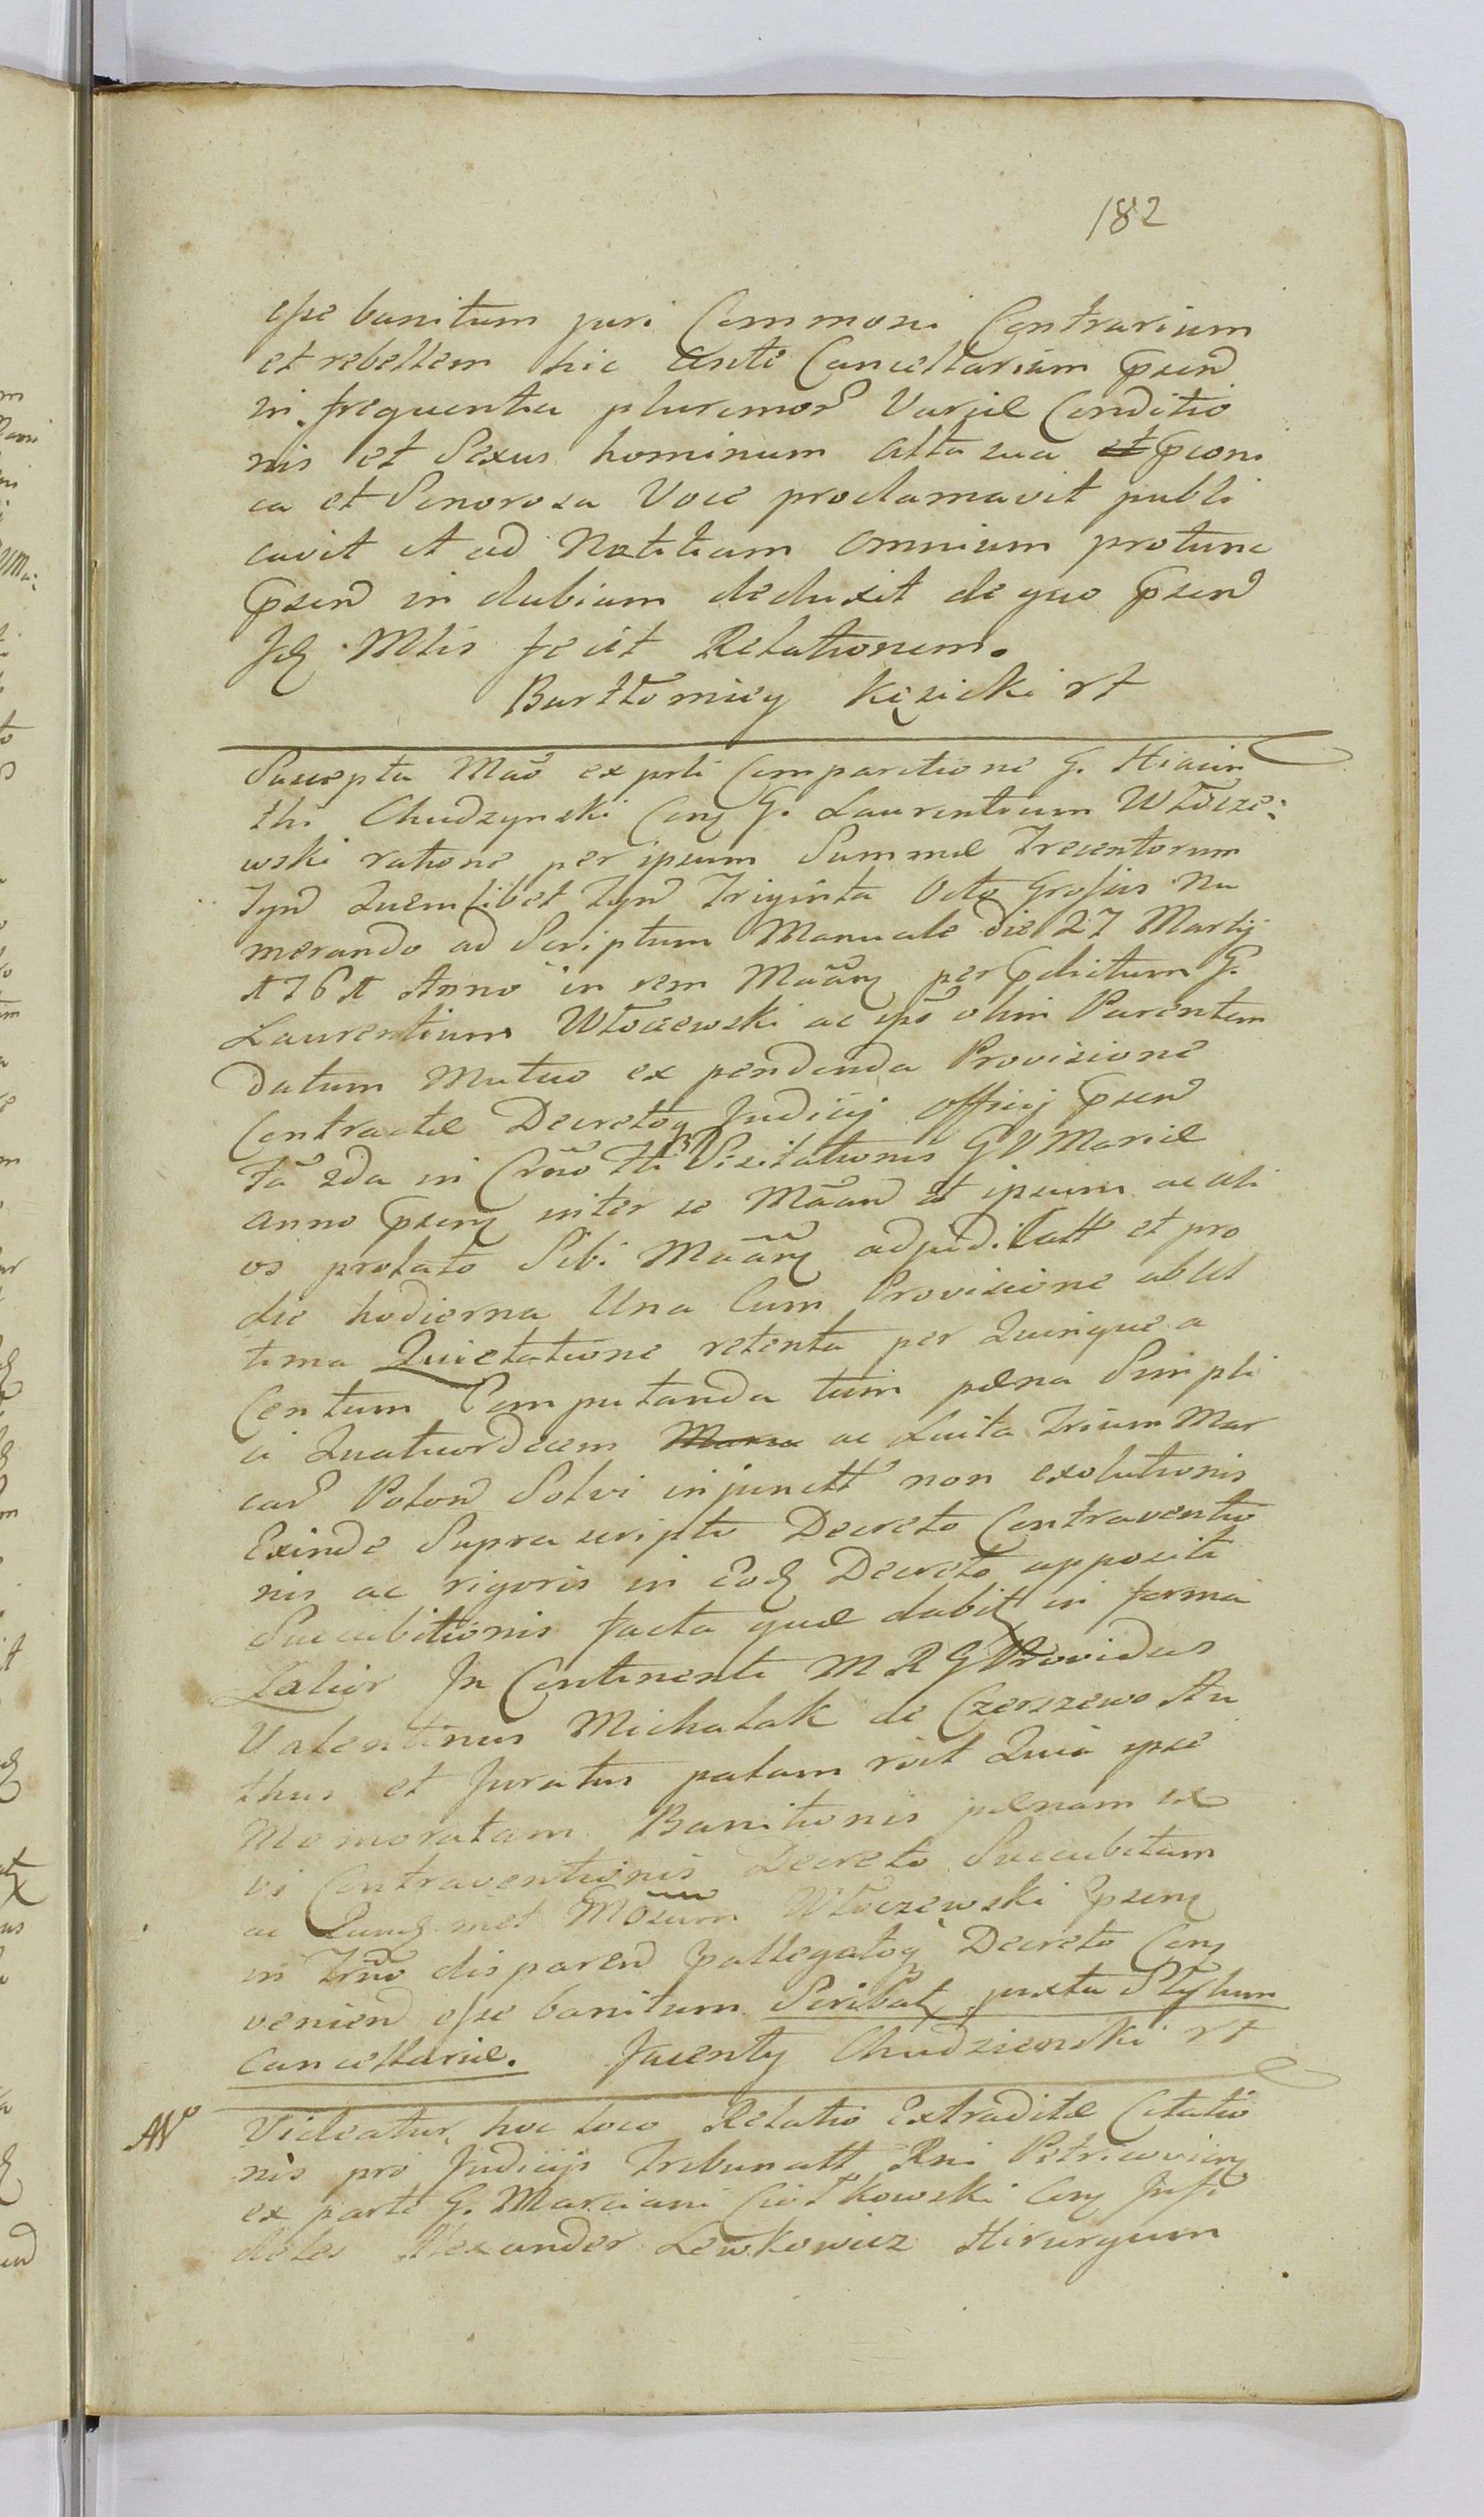 182
esse banitum juri Commoni Contrarium
et rebellem hic ante Cancellariam psen
in frequentia plurimor Variæ Conditio
nis et Sexus hominum alta sua et pconi
ca et Sonorosa Voce proclamavit publi
cavit et ad Notitiam omnium protunc
psen in dubiam deduxit de quo psen
Mlis fecit Relationem.
Bartłomiey Kęsicki rt
Suscepta ex prti Comparitione G. Hiacin
thi Chudzynski Con G. Laurentium Włocze:
wski ratione per ipsum Summæ Trecentorum
Tyn Quemlibet Tyn Triginta Octo Grossus Nu
merando ad Scriptum Manuale die 27 Martij
1761 Anno in rem per pdictum G.
Laurentium Włoczewski ac ips olim Parentem
datum Mutuo ex pendenda Provisione
Contractæ Decretoq Judicij officij psen
in Crno Visitationis G V Mariæ
anno psen inter se et ipsum ac ali
os prolato Sibi adjudicatt et pro
die hodierna Una Cum Provisione ab Ul
tima Quietatione retenta per Quinque a
Centum Computanda tum pæna Simpli
ci Quatuordecem ac Luita Trium Mar
car Polon Solvi injunctt non exolutionis
Exinde Supra scripto Decreto Contraventio
nis ac rigoris in Eod Decreto apposita
Succubitionis facta quæ dabit in forma
Latior In Continenti M R G Providus
Valentinus Michalak de Czerszewo Au
thus et Juratus palam rit Quia ipse
Memoratam Banitionis pænam ex
vi Contraventionis Decreto Succubitam
ac eund met Włoczewski psen
in Trno disparen pallegatoq Decreto Con
venien esse banitum Scribat juxta Stylum
Cancellariæ. Jacenty Chudziewski rt
Videatur hoc loco Relatio Extraditæ Citatio
nis pro Judicijs Tribunatt Rni Petricovien
ex parte G. Marciani Ciołkowski Con Infi
deles Alexander Lewkowicz Hirurgum